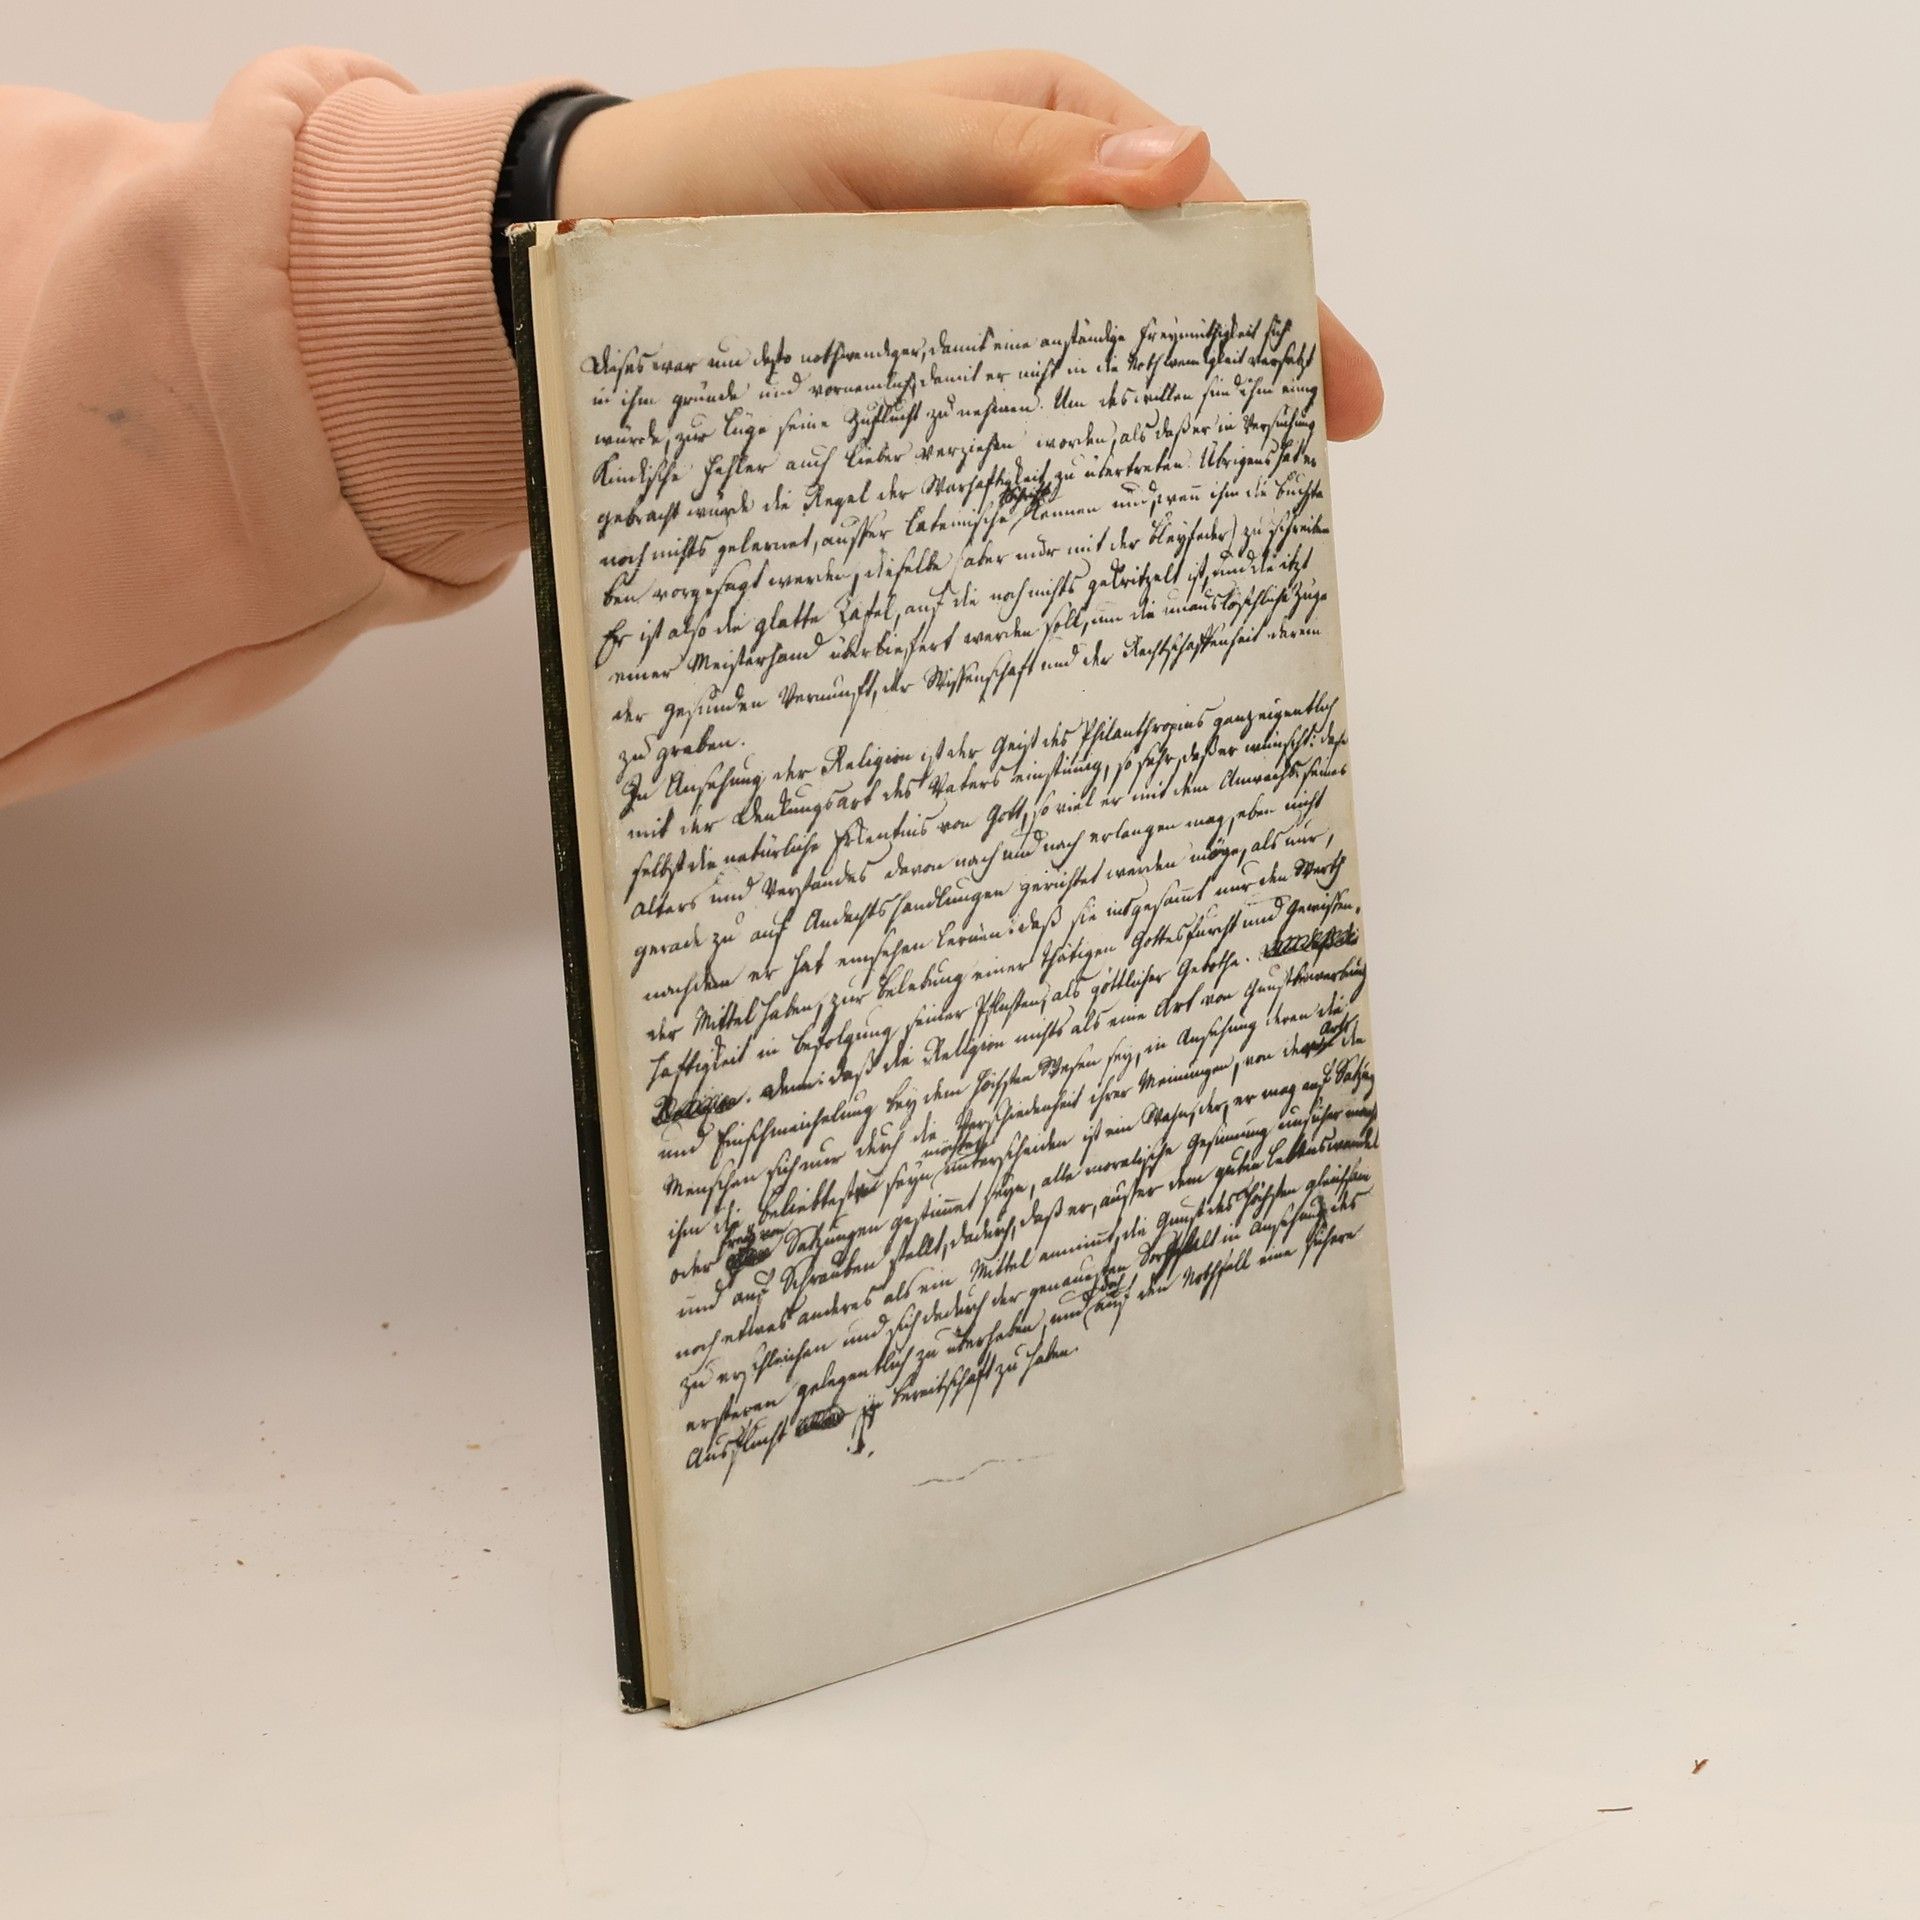 Dieses war um desto nothwendiger, damit eine anständige Freymüthigkeit sich
in ihm gründe und vornemlich, damit er nicht in die Nothwendigkeit versetzt
würde, zur Lüge seine Zuflucht zu nehmen. Um deswillen sind ihm einige
Kindische Fehler auch lieber verziehen worden, als daß er in Versuchung
gebracht würde die Regel der Warhaftigkeit zu übertreten. Übrigens hat er
noch nichts gelernet, ausser lateinische Schrift kennen und, wenn ihm die Buchsta
ben vorgesagt werden, dieselbe (aber nur mit der Bleyfeder) zu schreiben
Er ist also die glatte Tafel, auf die noch nichts gekritzelt ist, und die itzt
einer Meisterhand überliefert werden soll, um die unauslöschliche Züge
der gesunden Vernunft, der Wissenschaft und der Rechtschaffenheit darein
zu graben.
In Ansehung der Religion ist der Geist des Philanthropins ganz eigentlich
mit der Denkungsart des Vaters einstimmig, so sehr, daß er wünscht: daß
selbst die natürliche Erkentnis von Gott, so viel er mit dem Anwachs seines
Alters und Verstandes davon nach und nach erlangen mag, eben nicht
gerade zu auf Andachtshandlungen gerichtet werden möge, als nur,
nachdem er hat einsehen lernen: daß sie insgesammt nur den Werth
der Mittel haben, zur Belebung einer thätigen Gottesfurcht und Gewissen-
haftigkeit in Befolgung seiner Pflichten, als göttlicher Gebothe.
Denn: daß die Religion nichts als eine Art von Gunstbewerbung
und Einschmeichelung bey dem höchsten Wesen sey, in Ansehung deren die
Menschen sich nur durch die Verschiedenheit ihrer Meinungen, von der Art die
ihm die beliebteste seyn möchte unterscheiden ist ein Wahn, der, er mag auf Satzung
oder frey von Satzungen gestimmt seyn, alle moralische Gesinnung unsicher macht
und auf Schrauben stellt, dadurch, daß er, ausser dem guten Lebenswandel
noch etwas anderes als ein Mittel annimmt, die Gunst des Höchsten gleichsam
zu erschleichen und sich dadurch der genauesten Sorgfalt in Ansehung des
ersteren gelegentlich zu überheben, und doch auf den Nothfall eine sichere
Ausflucht in Bereitschaft zu haben.